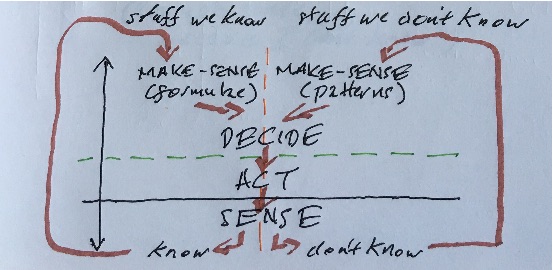 stuff we know stuff we don't know
MAKE-SENSE MAKE-SENSE
(formulæ) (patterns)
DECIDE
ACT
SENSE
know don't know